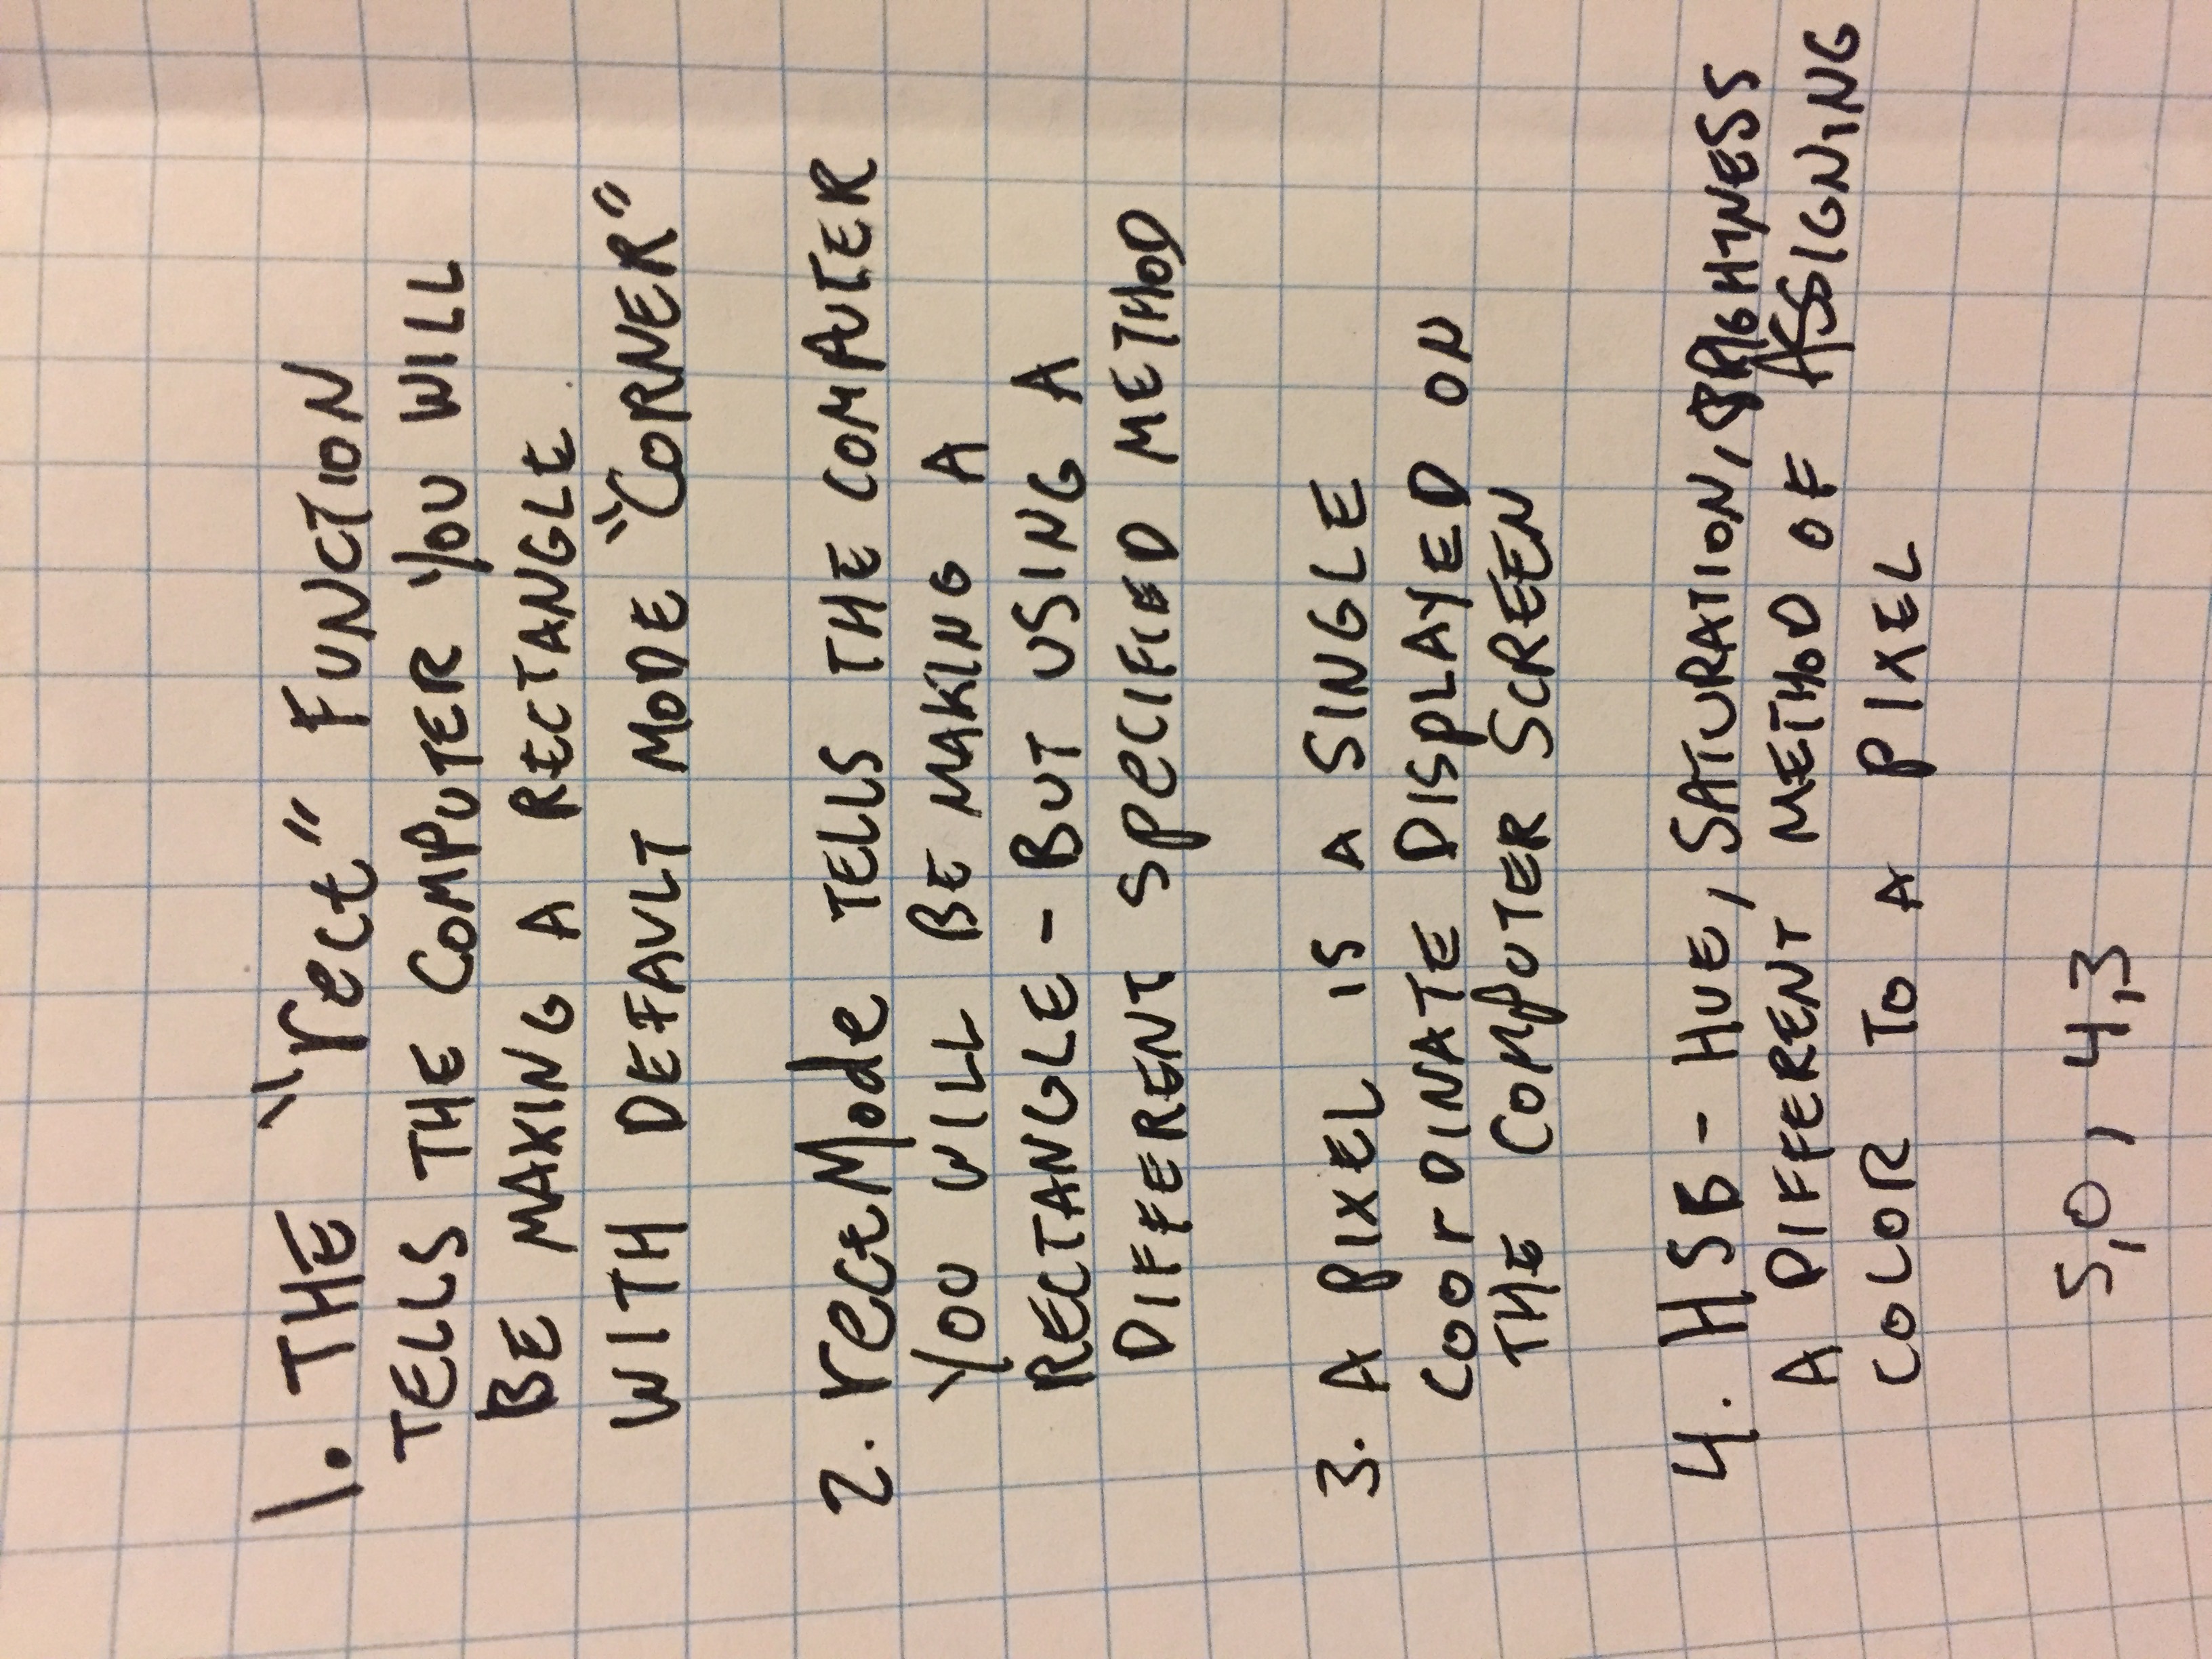 1. THE "rect" FUNCTION
TELLS THE COMPUTER YOU WILL
BE MAKING A RECTANGLE
WITH DEFAULT MODE "CORNER"
2. rectMode TELLS THE COMPUTER
YOU WILL BE MAKING A
RECTANGLE - BUT USING A
DIFFERENT SPECIFIED METHOD
3. A PIXEL IS A SINGLE
COORDINATE DISPLAYED ON
THE COMPUTER SCREEN
4. HSB - HUE, SATURATION, BRIGHTNESS
A DIFFERENT METHOD OF ASSIGNING
COLOR TO A PIXEL
5,0, 4,3